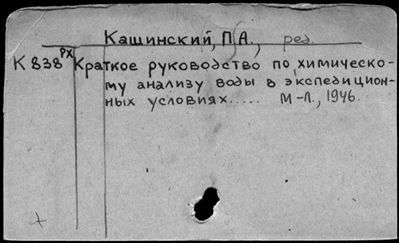 Кашинский, П.А., ред.
К 838 РХ Краткое руководство по химическо-
му анализу воды в экспедицион-
ных условиях..... М-Л., 1946.